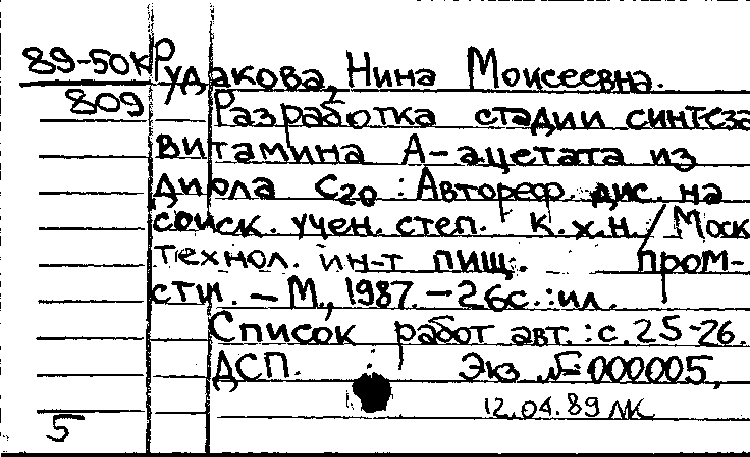 89-50к
809
Рудакова, Нина Моисеевна.
Разработка стадии синтеза
витамина А-ацетата из
диола С20 : Автореф. дис. на
соиск. учен. степ. к.х.н. / Моск
технол. ин-т пищ. пром-
сти. – М., 1987. – 26с. : ил.
Список работ авт. : с. 25-26.
ДСП. Экз № 000005.
12.04.89 ЛК
5